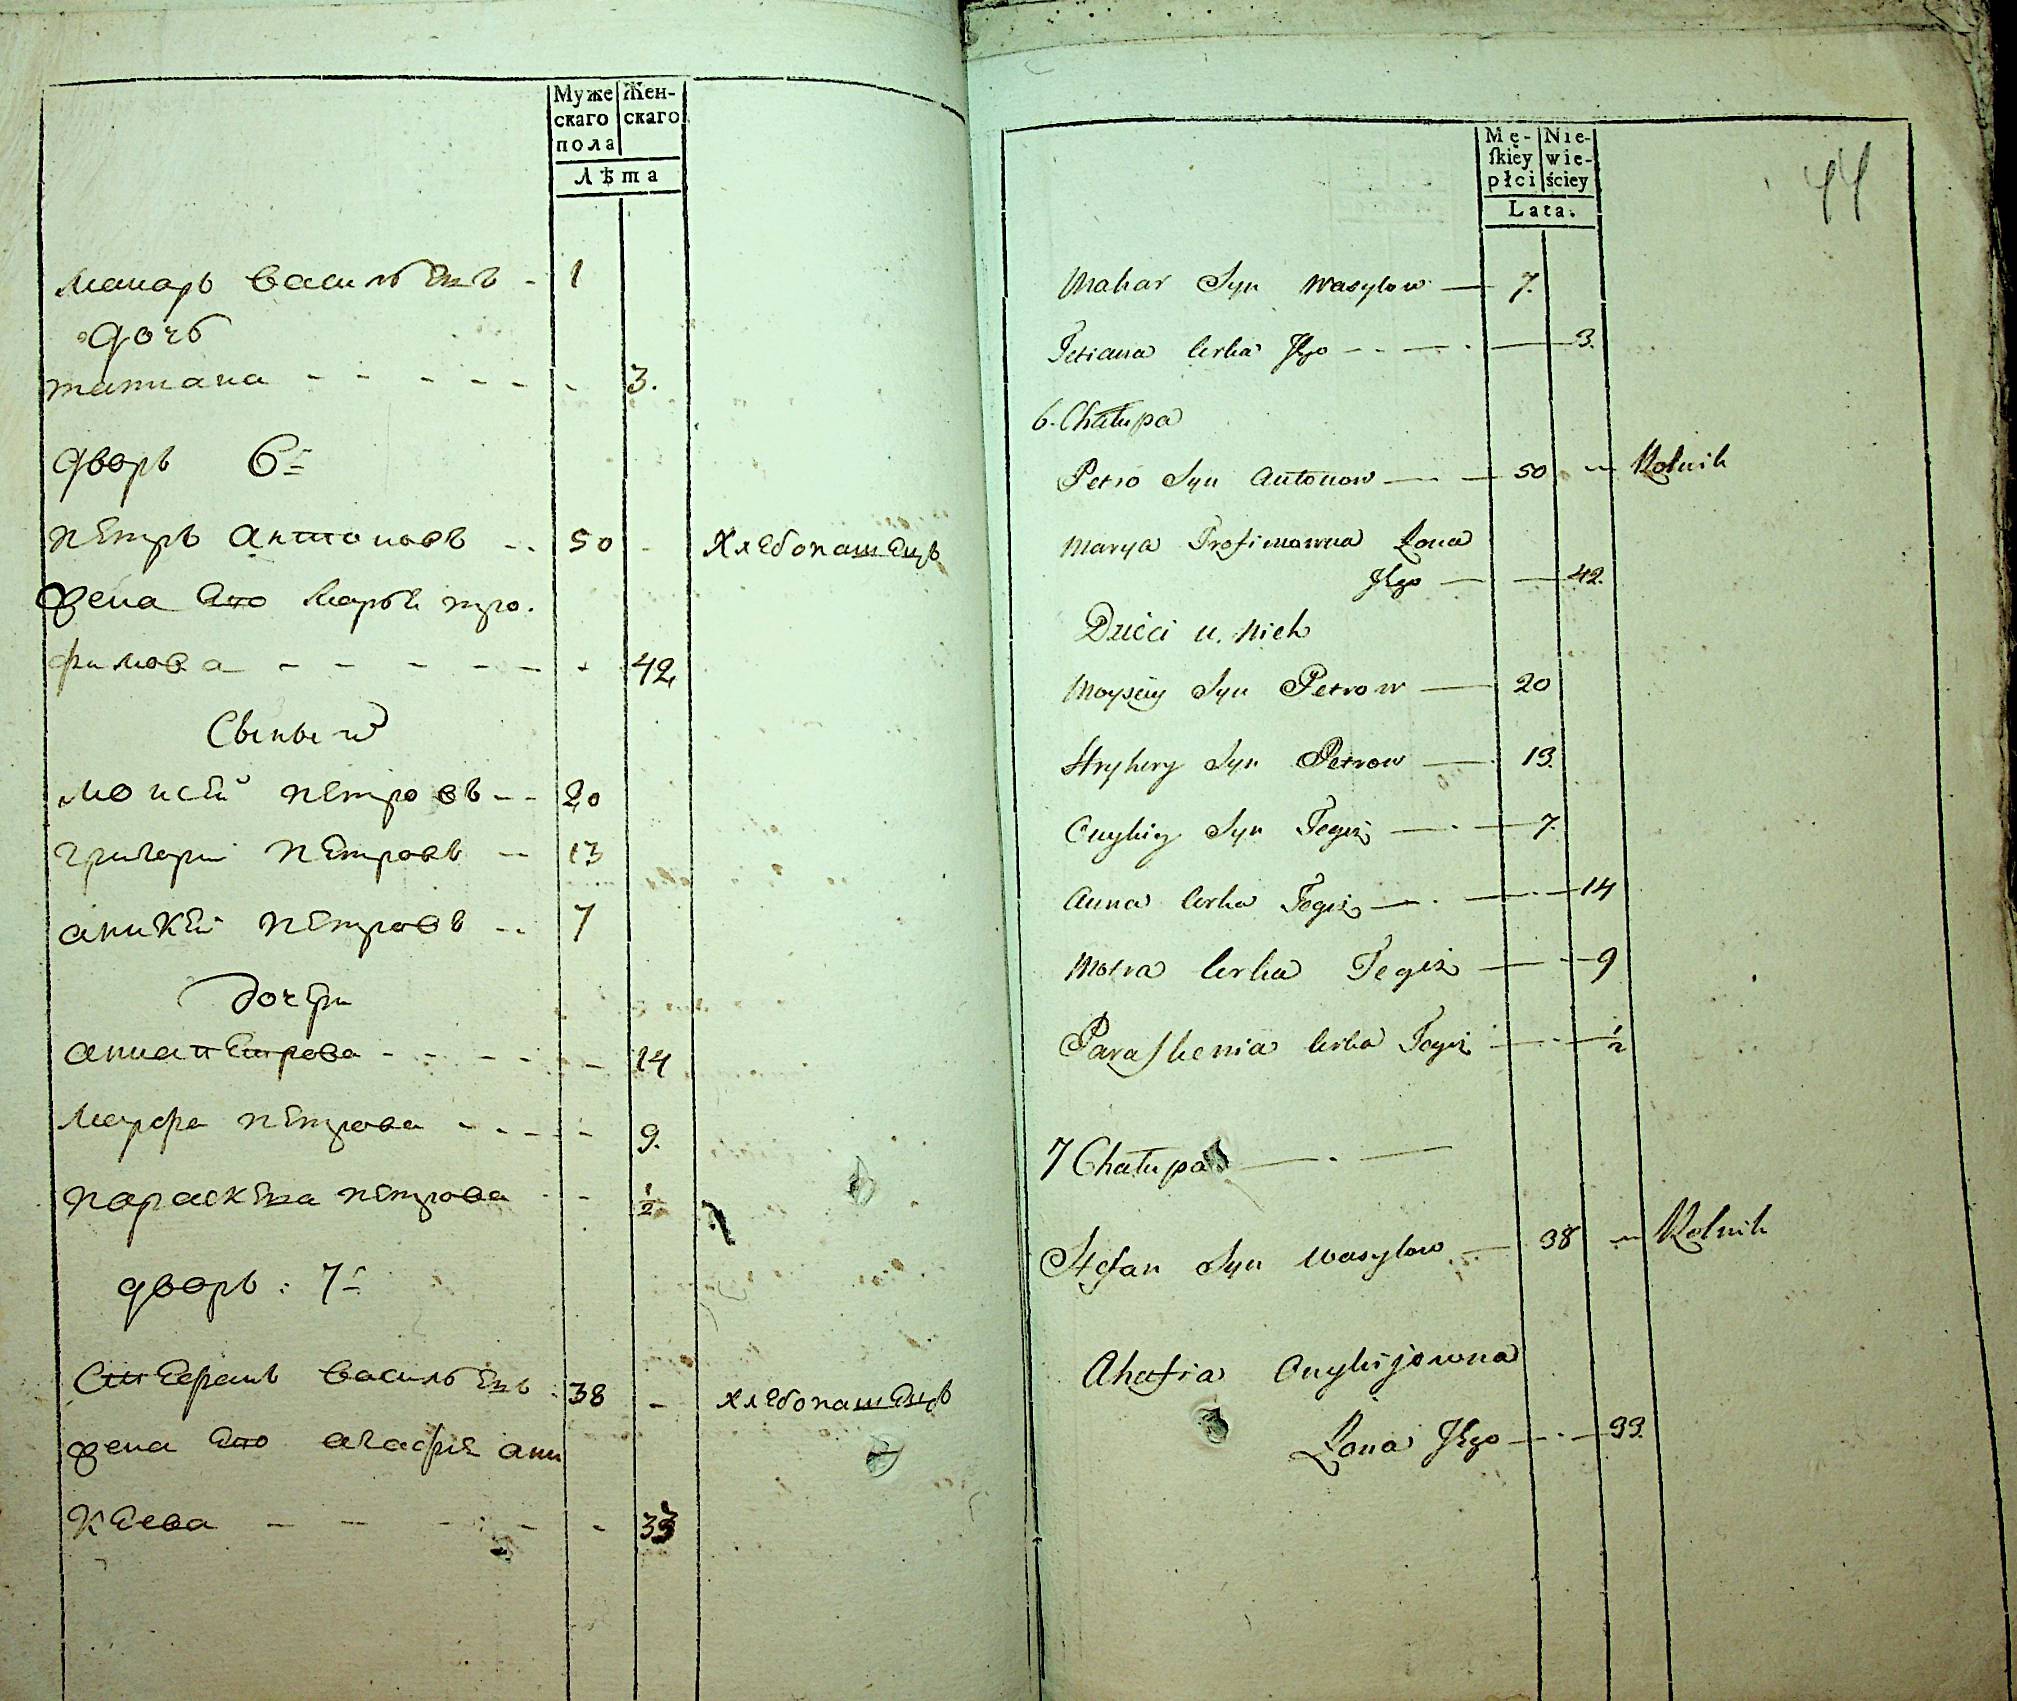 Муже Жен-
скаго скаго
пола
Лѣта
Макаръ Васильевъ - 1
дочь
татиана - - - - - - 3.
дворъ 6й
петръ антоновъ - 50 - хлебопашецъ
жена его марья тро.
фимова - - - - - - 42
Сыны и͡х
моисей петровъ - - 20
григори петровъ - 13
аникей петровъ - 7
дочери
анна петрова - - - - 14
марфа петрова - - - - 9.
параскева петрова - - ½
дворъ: 7й
Стефанъ васильевъ 38 - хлебопашецъ
жена его агафия ани
кеева - - - - - - 33
Mę- Nie-
ſkiey wie-
płci ściey
Lata.
44
Makar Syn Wasylow — 7.
Tetiana Corka Jego — 3.
6. Chałupa
Petro Syn Antonow — 50 — Rolnik
Marya Trofimowna Żona
Jego — 42.
Dzieci u. nich
Moysiey Syn Petrow — 20
Hryhory Syn Petrow — 13.
Onykiy Syn Tegoż — 7.
Anna Corka Tegoż — 14
Motra Corka Tegoż — 9
Paraſkenia Corka Tegoż — ½
7 Chałupa —
Stefan Syn Wasylow — 38 — Rolnik
Ahafia Onykijowna
Żona Jego — 33.